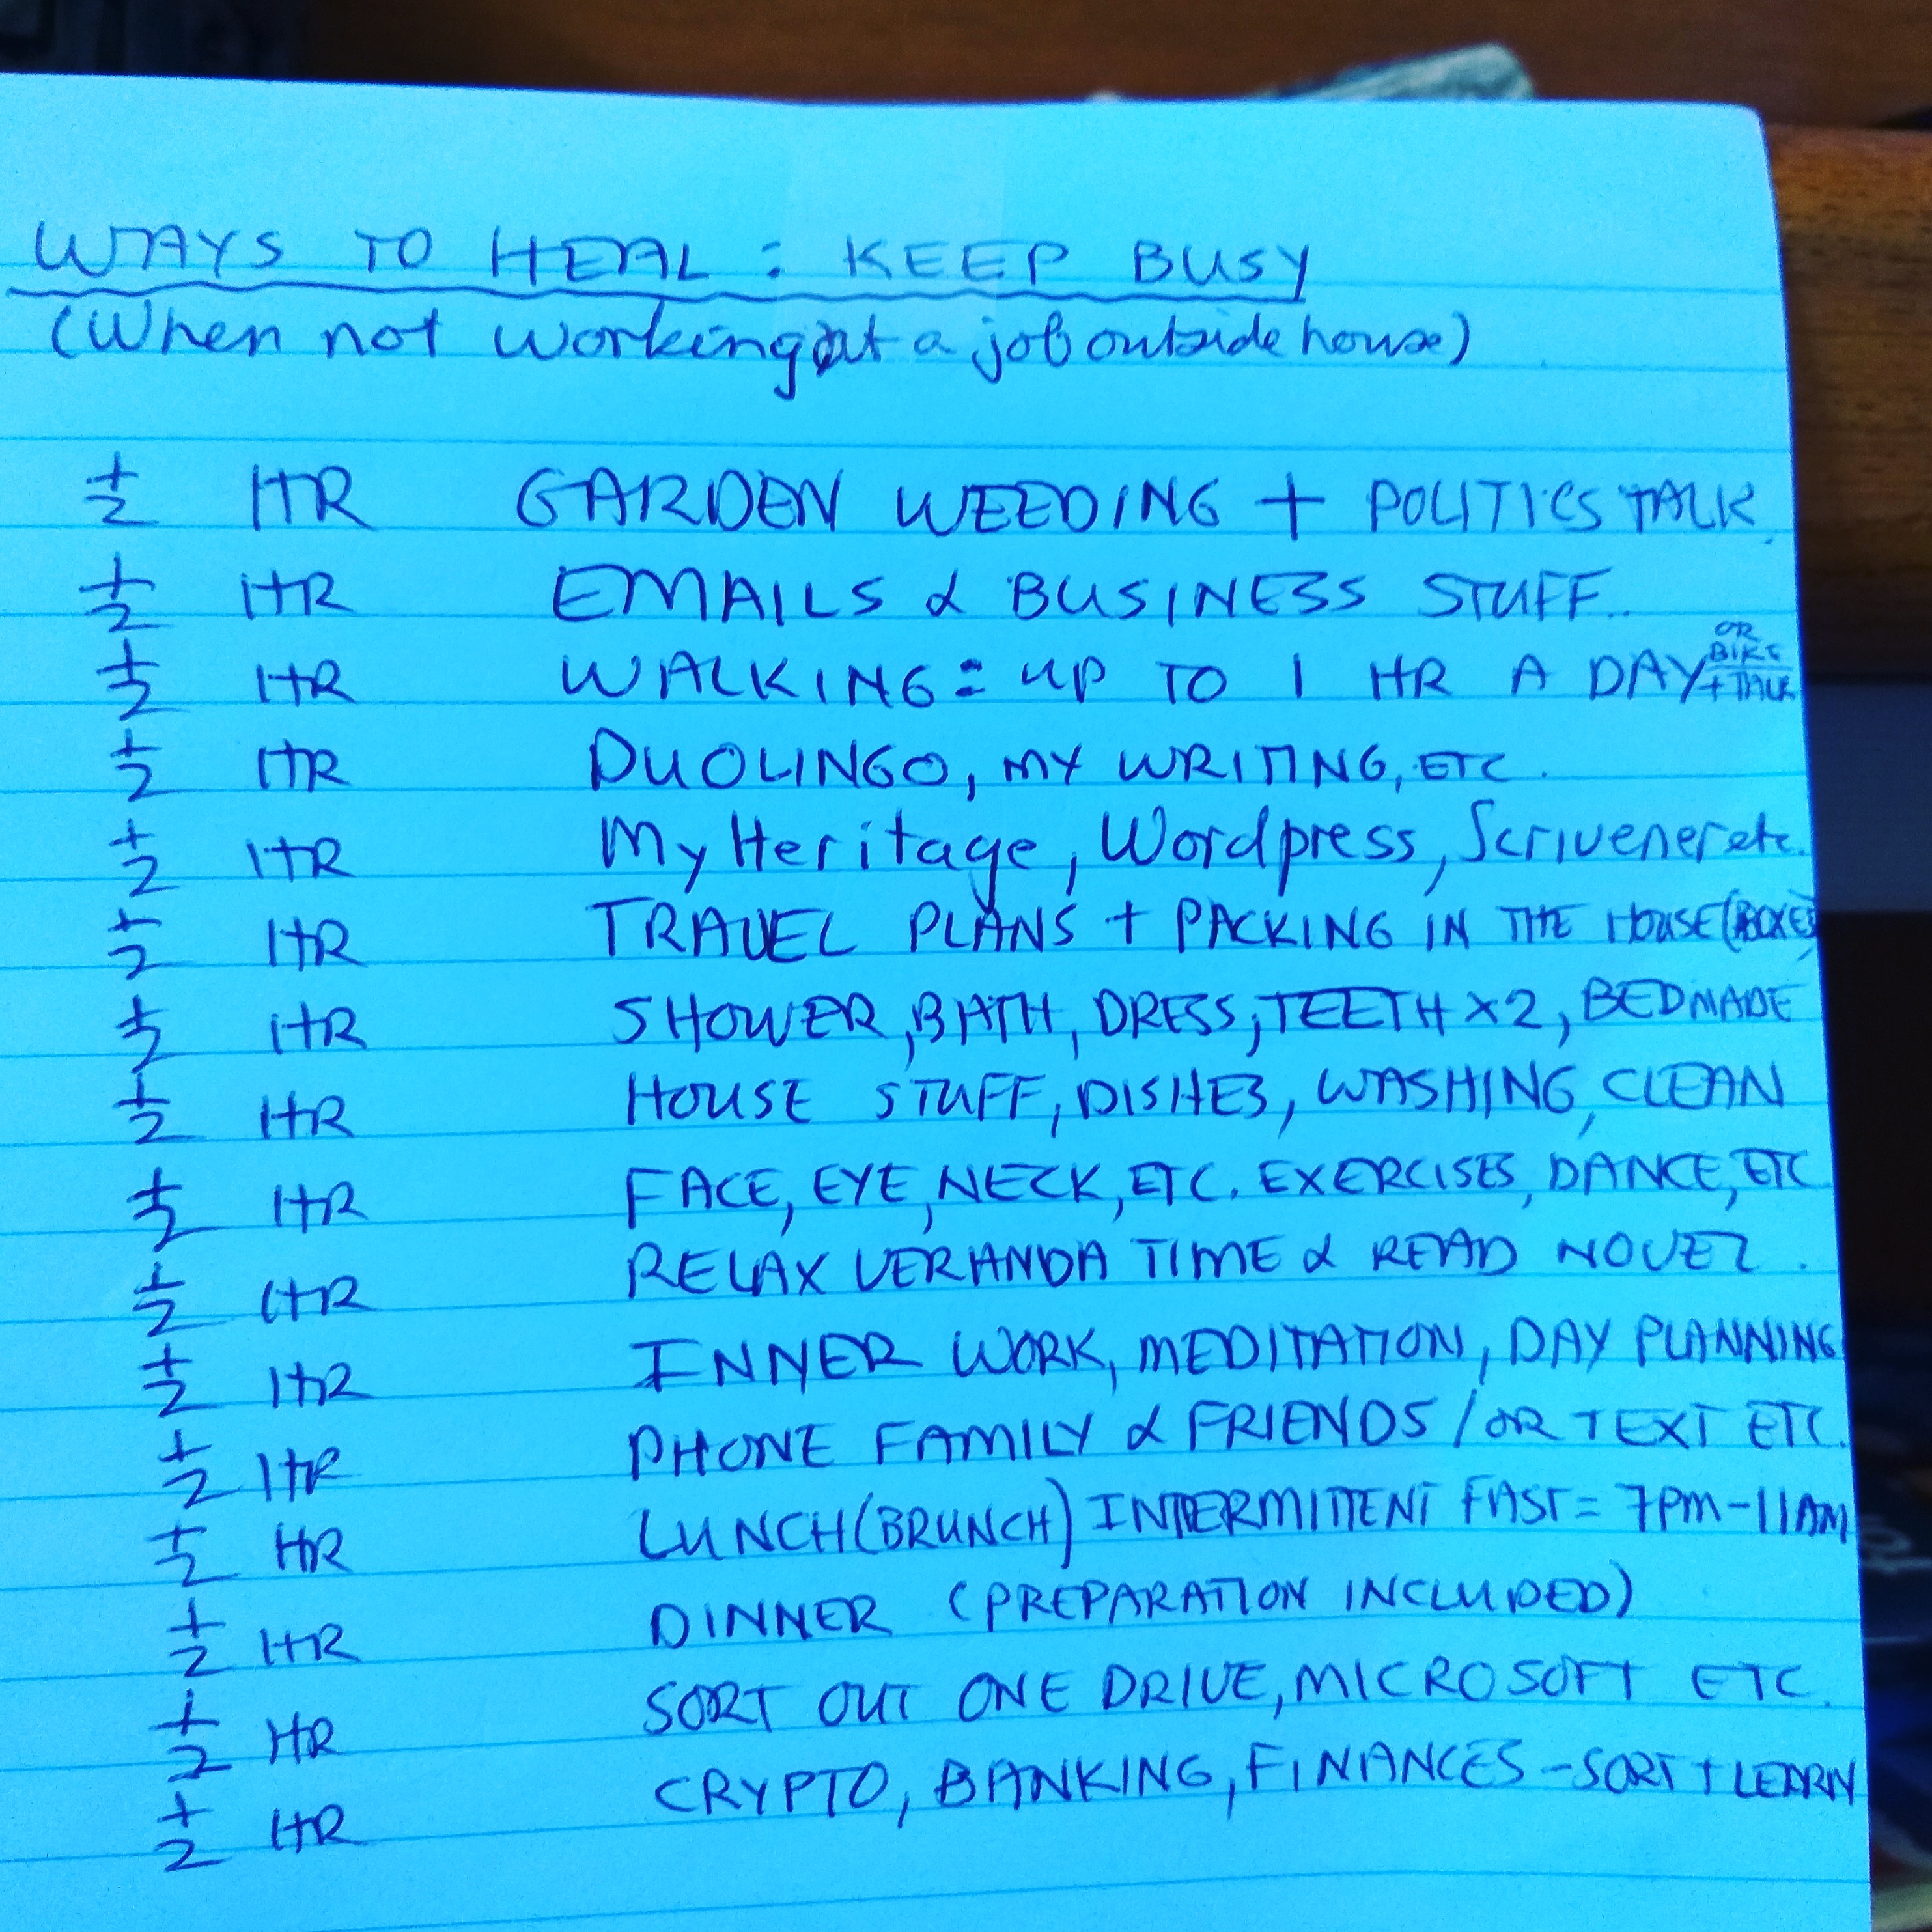 WAYS TO HEAL : KEEP BUSY
(When not working at a job outside house)
1/2 HR GARDEN WEEDING + POLITICS TALK
1/2 HR EMAILS & BUSINESS STUFF.
1/2 HR WALKING = UP TO 1 HR A DAY OR BIKE + TALK
1/2 HR DUOLINGO, MY WRITING, ETC.
1/2 HR My Heritage, Wordpress, Scrivener etc.
1/2 HR TRAVEL PLANS + PACKING IN THE HOUSE (BOXES)
1/2 HR SHOWER, BATH, DRESS, TEETH X2, BED MADE
1/2 HR HOUSE STUFF, DISHES, WASHING, CLEAN
1/2 HR FACE, EYE, NECK, ETC. EXERCISES, DANCE, ETC
1/2 HR RELAX VERANDA TIME & READ NOVEL.
1/2 HR INNER WORK, MEDITATION, DAY PLANNING
1/2 HR PHONE FAMILY & FRIENDS / OR TEXT ETC.
1/2 HR LUNCH (BRUNCH) INTERMITTENT FAST = 7PM-11AM
1/2 HR DINNER (PREPARATION INCLUDED)
1/2 HR SORT OUT ONE DRIVE, MICROSOFT ETC.
1/2 HR CRYPTO, BANKING, FINANCES - SORT + LEARN